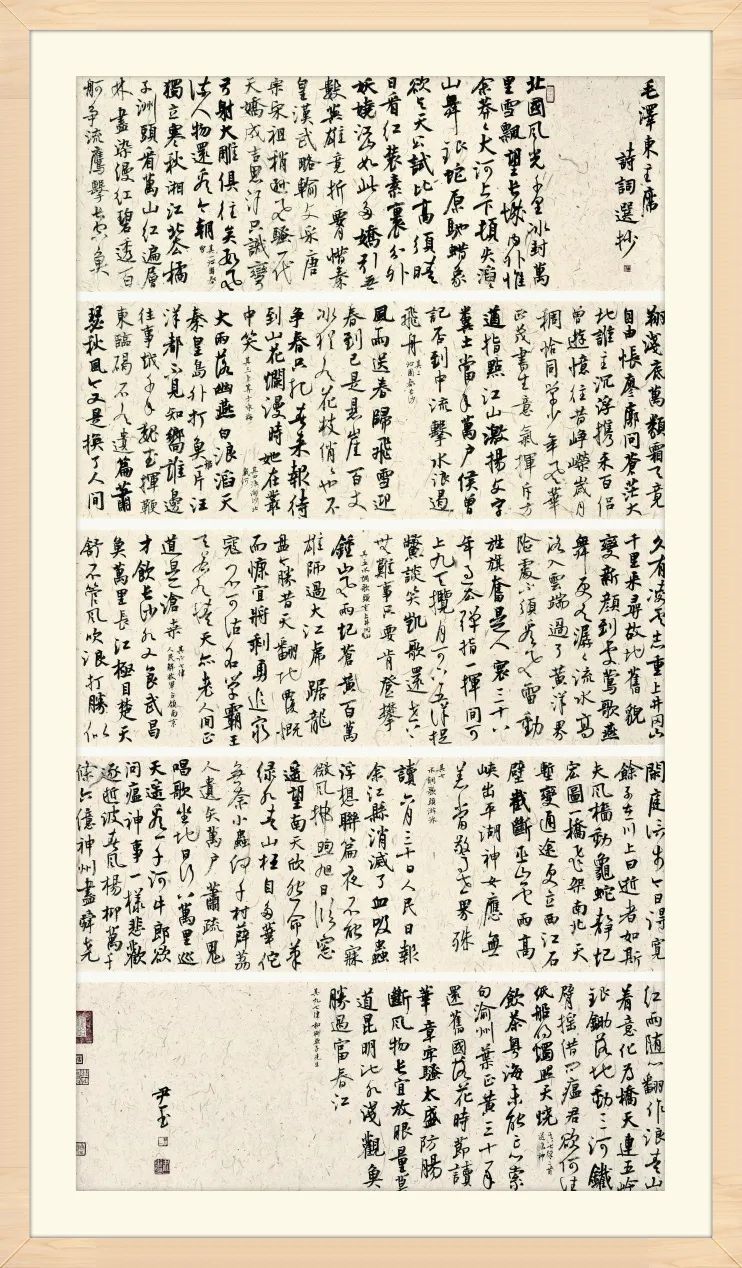 毛澤東主席
詩詞選抄
北國風光千里冰封萬
里雪飄望長城內外惟
余莽々大河上下頓失滔々
山舞銀蛇原馳蠟象
欲與天公試比高須晴
日看紅裝素裹分外
妖嬈江山如此多嬌引無
數英雄竟折腰惜秦
皇漢武略輸文采唐
宗宋祖稍遜風騷一代
天嬌成吉思汗只識彎
弓射大雕俱往矣數風
流人物還看今朝 其一沁園春雪
獨立寒秋湘江北去橘
子洲頭看萬山紅遍層
林盡染漫江碧透百
舸爭流鷹擊長空魚
翔淺底萬類霜天竞
自由悵寥廓問蒼茫大
地誰主沉浮攜來百侶
曾遊憶往昔崢嶸歲月
稠恰同學少年風華
正茂書生意氣揮斥方
遒指點江山激揚文字
糞土當年萬戶侯曾
記否到中流擊水浪遏
飛舟 其二沁園春長沙
風雨送春歸飛雪迎
春到已是懸崖百丈
冰猶有花枝俏俏也不
爭春只把春來報待
到山花爛漫時她在叢
中笑 其三卜算子詠梅
大雨落幽燕白浪滔天
秦皇島外打魚船一片汪
洋都不見知嚮誰邊
往事越千年魏武揮鞭
東臨碣石有遺篇蕭
瑟秋風今又是換了人間
其四浪淘沙北戴河
久有凌雲志重上井岡山
千里來尋故地舊貌
變新顏到處鶯歌燕
舞更有潺々流水高
路入雲端過了黃洋界
險處不須看風雷動
旌旗奮是人寰三十八
年過去彈指一揮間可
上九天攬月可下五洋捉
鱉談笑凱歌還世上
無難事只要肯登攀
其五水調歌頭重上井岡山
鍾山風雨起蒼黃百萬
雄師過大江虎踞龍
盤今勝昔天翻地覆慨
而慷宜將剩勇追窮
寇不可沽名學霸王
天若有情天亦老人間正
道是滄桑 其六七律人民解放軍占領南京
才飲長沙水又食武昌
魚萬里長江極目楚天
舒不管風吹浪打勝似
閑庭信步今日得寬
餘子在川上曰逝者如斯
夫風檣動龜蛇靜起
宏圖一橋飛架南北天
塹變通途更立西江石
壁截斷巫山雲雨高
峽出平湖神女應無
恙當驚世界殊
其七水調歌頭游泳
讀六月三十日人民日報
余江縣消滅了血吸蟲
浮想聯篇夜不能寐
微風拂煦旭日臨窗
遥望南天欣然命筆
綠水青山枉自多華佗
無奈小蟲何千村薜荔
人遺矢萬戶蕭疏鬼
唱歌坐地日行八萬里巡
天遥看一千河牛郎欲
問瘟神事一樣悲歡
逐逝波春風楊柳萬千
條六億神州盡舜堯
紅雨隨心翻作浪青山
着意化為橋天連五嶺
銀鋤落地動三河鐵
臂搖借問瘟君欲何往
紙船明燭照天燒 其八七律二首送瘟神
飲茶粵海未能忘索
句渝州葉正黃三十一年
還舊國落花時節讀
華章牢騷太盛防腸
斷風物長宜放眼量莫
道昆明池水淺觀魚
勝過富春江
其九七律和柳亞子先生
尹玉